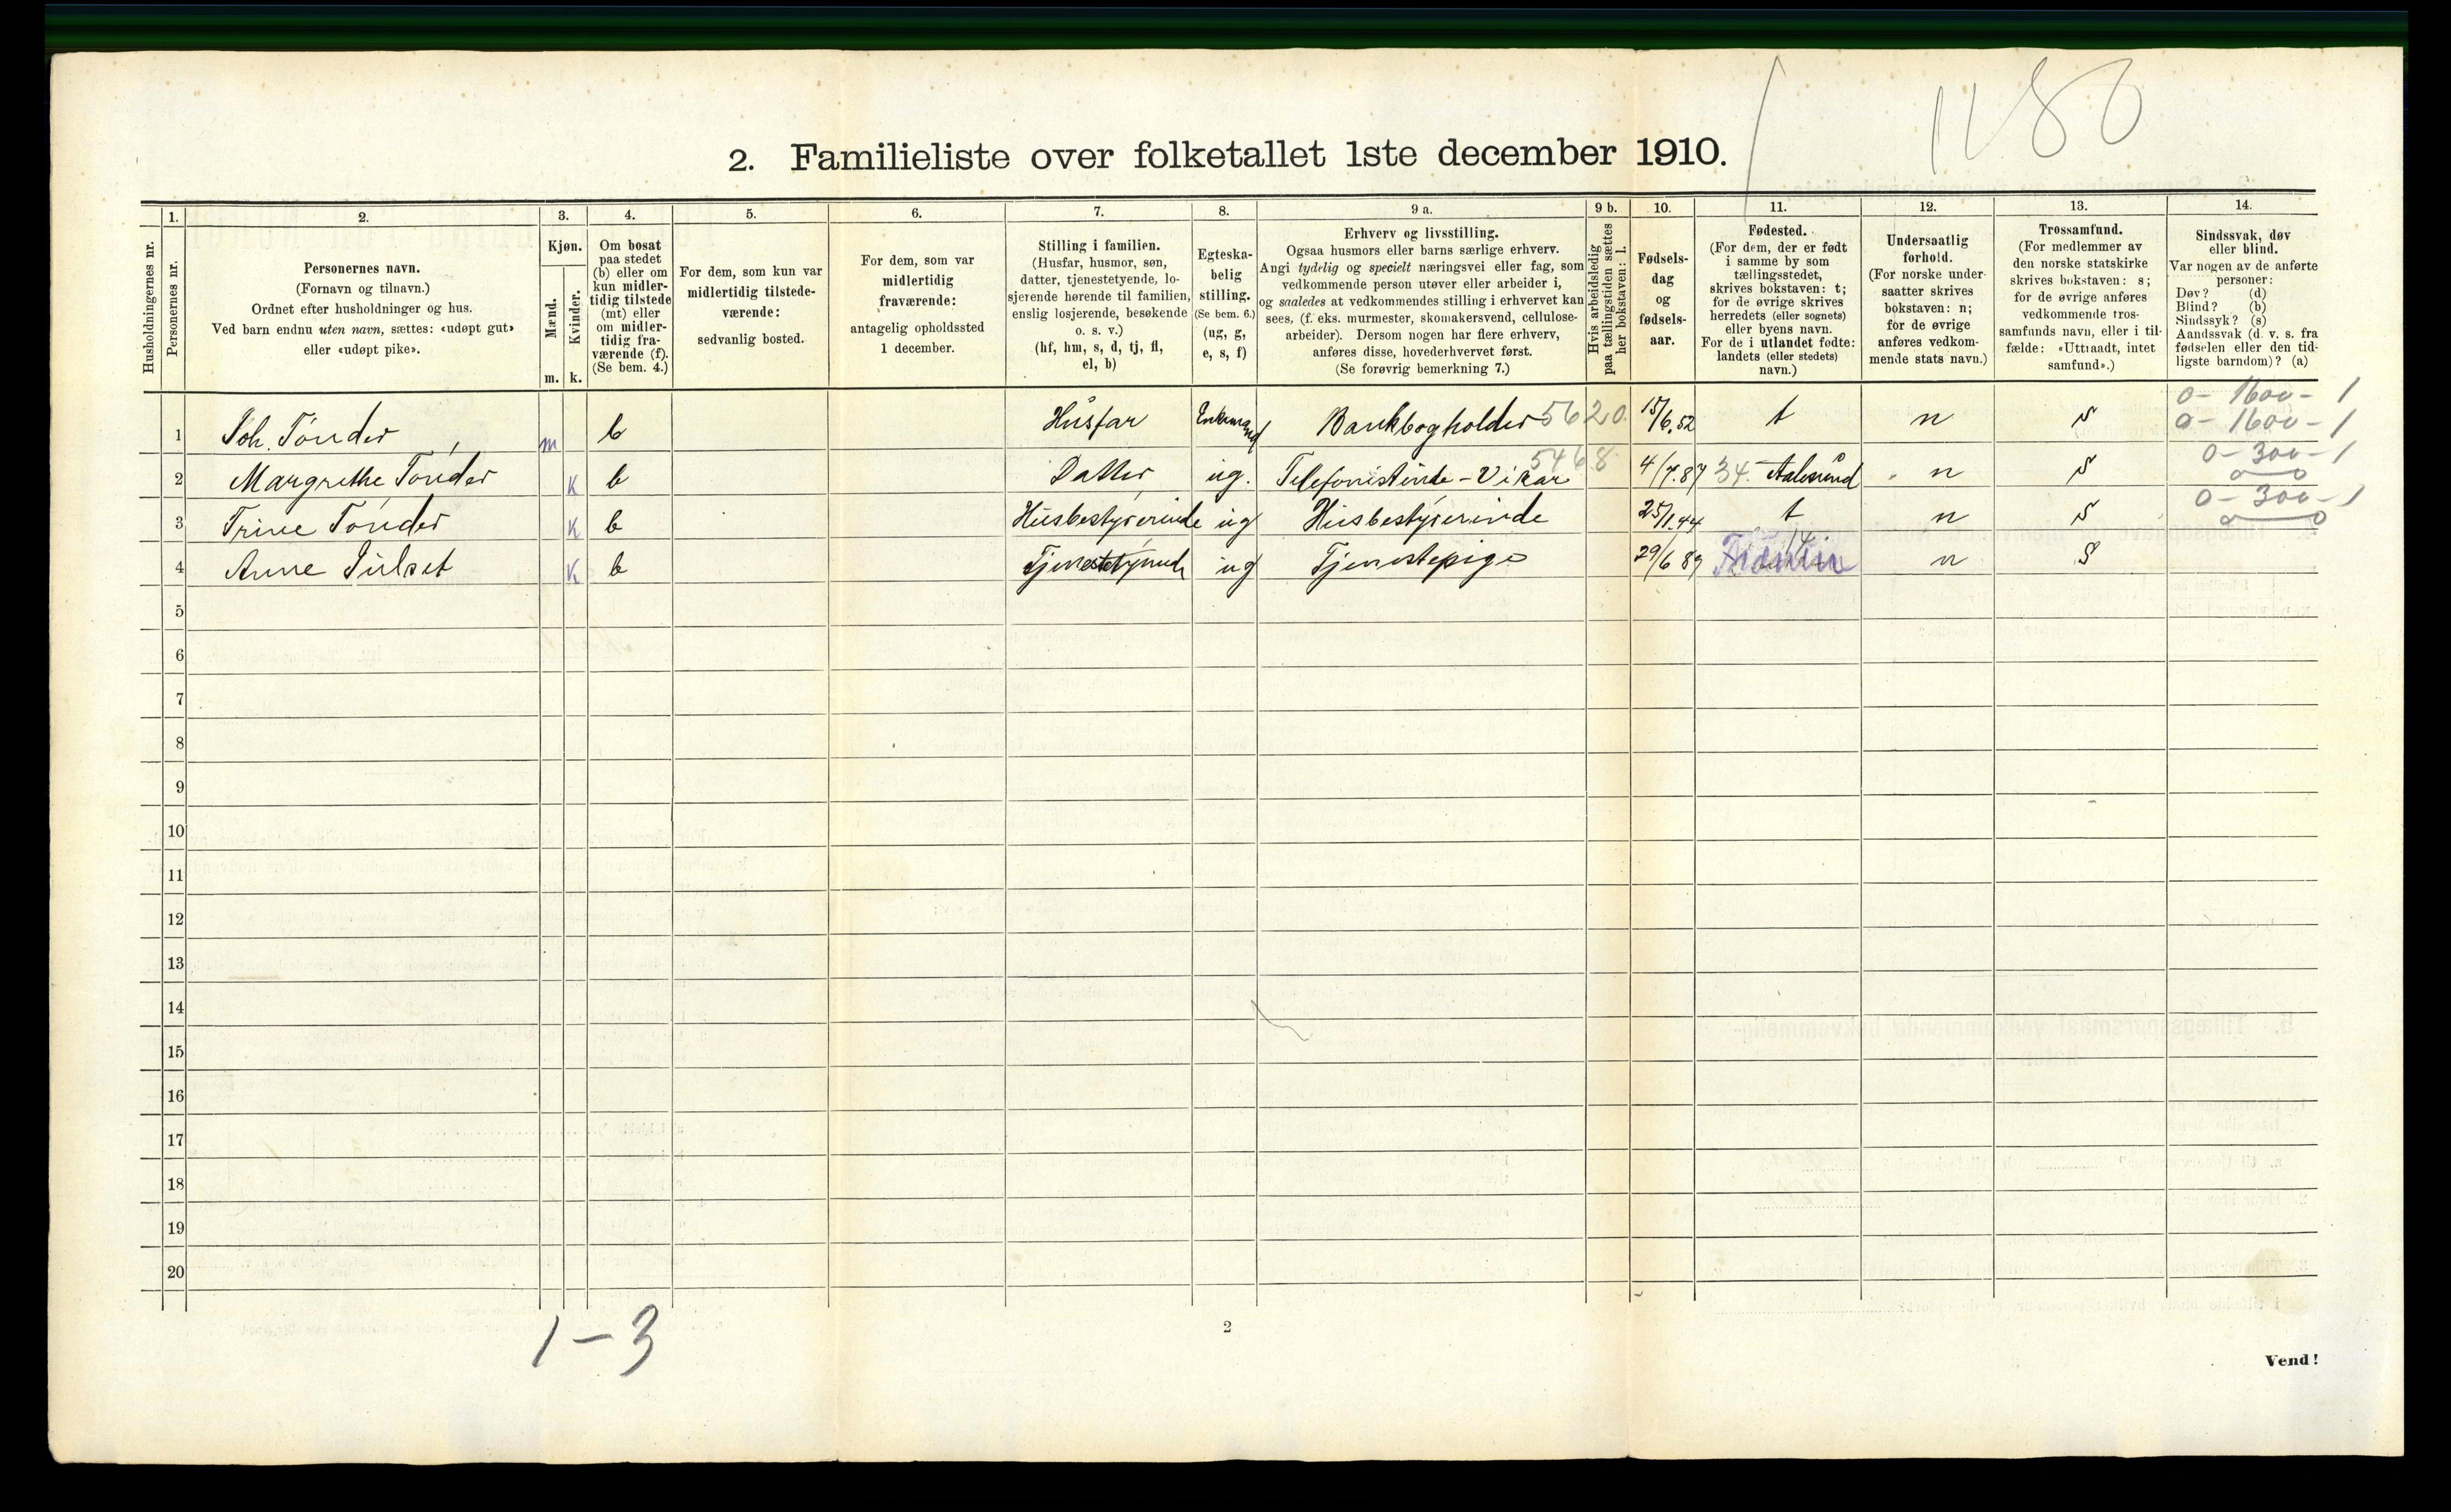 1180
2. Familieliste over folketallet 1ste december 1910.
Husholdningernes nr.
1.
Personernes nr.
2.
Personernes navn.
(Fornavn og tilnavn.)
Ordnet efter husholdninger og hus.
Ved barn endnu uten navn, sættes: «udøpt gut»
eller «udøpt pike».
3.
Kjøn.
Mænd.
Kvinder.
m. k.
4.
Om bosat
paa stedet
(b) eller om
kun midler-
tidig tilstede
(mt) eller
om midler-
tidig fra-
værende (f).
(Se bem. 4.)
5.
For dem, som kun var
midlertidig tilstede-
værende:
sedvanlig bosted.
6.
For dem, som var
midlertidig
fraværende:
antagelig opholdssted
1 december.
7.
Stilling i familien.
(Husfar, husmor, søn,
datter, tjenestetyende, lo-
sjerende hørende til familien,
enslig losjerende, besøkende
o. s. v.)
(hf, hm, s, d, tj, fl,
el, b)
8.
Egteska-
belig
stilling.
(Se bem. 6.)
(ug, g,
e, s, f)
9 a.
Erhverv og livsstilling.
Ogsaa husmors eller barns særlige erhverv.
Angi tydelig og specielt næringsvei eller fag, som
vedkommende person utøver eller arbeider i,
og saaledes at vedkommendes stilling i erhvervet kan
sees, (f. eks. murmester, skomakersvend, cellulose-
arbeider). Dersom nogen har flere erhverv,
anføres disse, hovederhvervet først.
(Se forøvrig bemerkning 7.)
9 b.
Hvis arbeidsledig
paa tællingstiden sættes
her bokstaven: l.
10.
Fødsels-
dag
og
fødsels-
aar.
11.
Fødested.
(For dem, der er født
i samme by som
tællingsstedet,
skrives bokstaven: t;
for de øvrige skrives
herredets (eller sognets)
eller byens navn.
For de i utlandet fødte:
landets (eller stedets)
navn.)
12.
Undersaatlig
forhold.
(For norske under-
saatter skrives
bokstaven: n;
for de øvrige
anføres vedkom-
mende stats navn.)
13.
Trossamfund.
(For medlemmer av
den norske statskirke
skrives bokstaven: s;
for de øvrige anføres
vedkommende tros-
samfunds navn, eller i til-
fælde: «Uttraadt, intet
samfund».)
14.
Sindssvak, døv
eller blind.
Var nogen av de anførte
personer:
Døv? (d)
Blind? (b)
Sindssyk? (s)
Aandssvak (d. v. s. fra
fødselen eller den tid-
ligste barndom)? (a)
0 - 1600 - 1
1 Joh. Tønder m b Husfar Enkemand Bankbogholder 5620. 15/6.52 t n s 0 - 1600 - 1
2 Margrethe Tønder k b Datter ug. Telefonistinde - Vikar 5468 4/7.87 34. Aalesund n s 0 - 300 - 1
3 Trine Tønder k b Husbestyrerinde ug Husbestyrerinde 25/1.44 t n s 0 - 300 - 1
4 Anne k b Tjenestetyende ug Tjenestepige 29/6 89 n s
5
6
7
8
9
10
11
12
13
14
15
16
17
18
19
20
1 - 3
2
Vend!